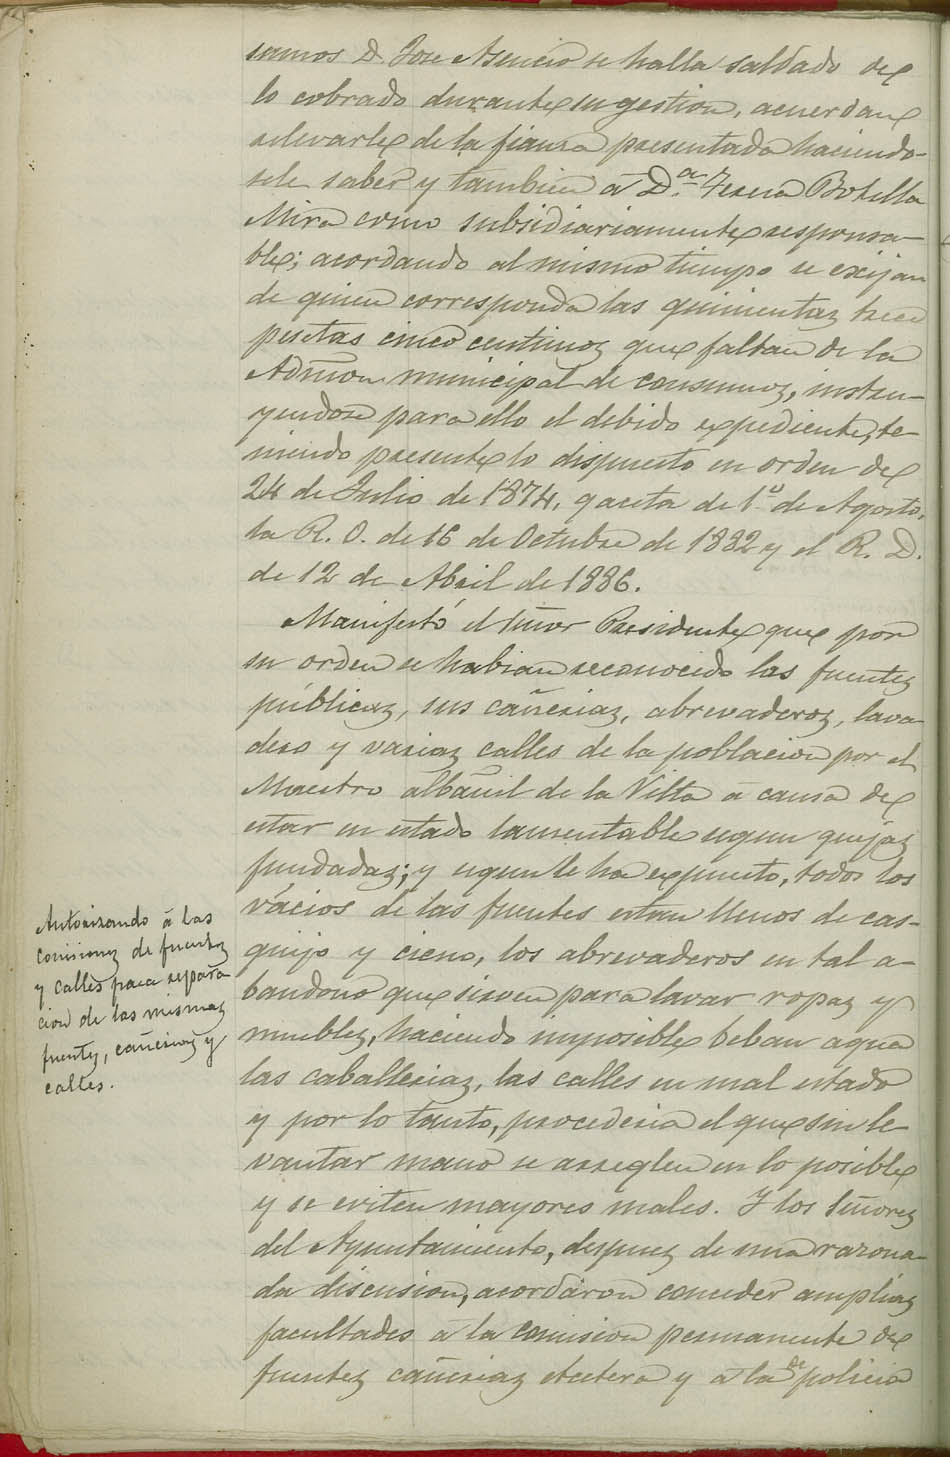 sumos D. Jose Asencio se halla saldado de
lo cobrado durante su gestion, acuerdan
relevarle de la fianza presentada haciendo-
sele saber y tambien á D.ª Teresa Botella
Mira como subsidiariamente responsa-
ble; acordando al mismo tiempo se exijan
de quien corresponda las quinientas trece
pesetas cinco centimos que faltan de la
Admon municipal de consumos, instru-
yendose para ello el debido expediente, te-
niendo presente lo dispuesto en orden de
24 de Julio de 1874, gaceta de 1º de Agosto,
la R. O. de 16 de Octubre de 1882 y el R. D.
de 12 de Abril de 1886.
Manifestó el Señor Presidente que por
su orden se habian reconocido las fuentes
públicas, sus cañerias, abrevaderos, lava-
dero y varias calles de la poblacion por el
Maestro albañil de la Villa á causa de
estar en estado lamentable segun quejas
fundadas; y segun le ha expuesto, todos los
vácios de las fuentes estan llenos de cas-
quijo y cieno, los abrevaderos en tal a-
bandono que sirven para lavar ropas y
muebles, haciendo imposible beban agua
las caballerias, las calles en mal estado
y por lo tanto, procederia el que sin le-
vantar mano se arreglen en lo posible
y se eviten mayores males. Y los Señores
del Ayuntamiento, despues de una razona-
da discusion, acordaron conceder amplias
facultades á la comision permanente de
fuentes cañerias etcetera y á la de policia
Autorizando á las
comisiones de fuentes
y calles para repara
cion de las mismas
fuentes, cañerias y
calles.